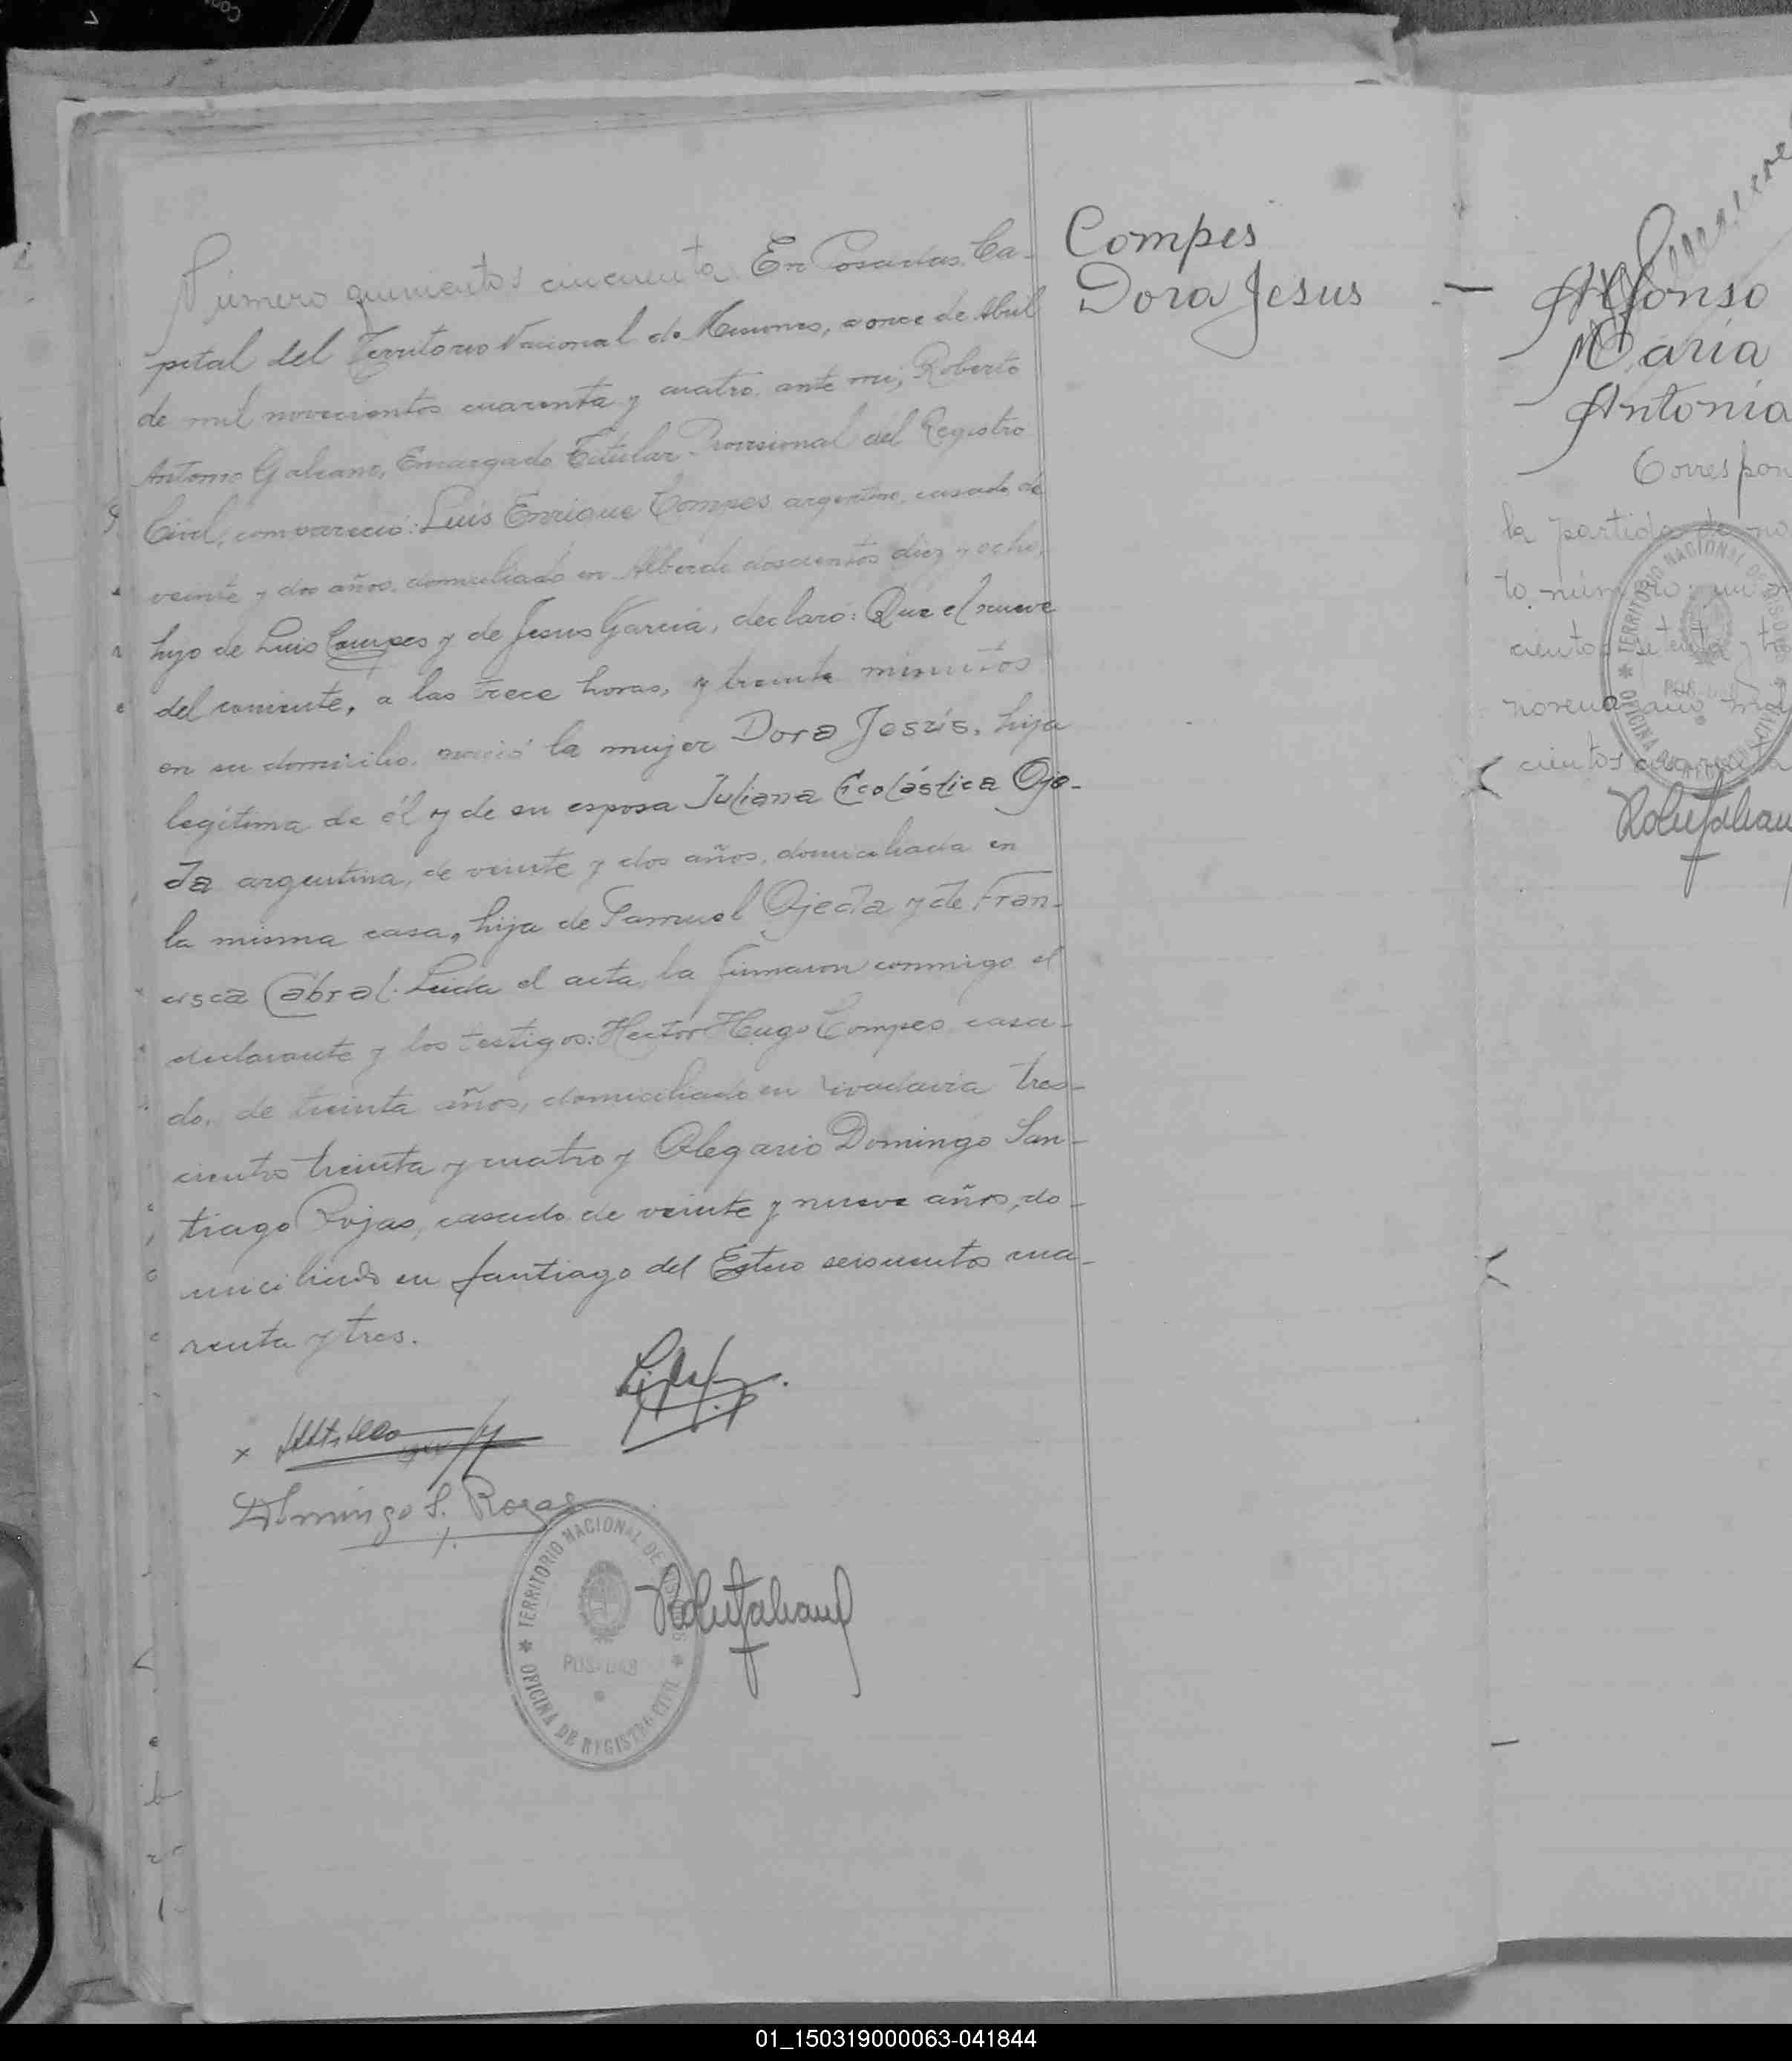 Número quinientos cincuenta En Posadas, Ca-
pital del Territorio Nacional de Misiones, a once de Abril
de mil novecientos cuarenta y cuatro, ante mi, Roberto
Antonio Galeano, Encargado Titular Provisional del Registro
Civil, compareció: Luis Enrique Compes argentino, casado, de
veinte y dos años, domiciliado en Alberdi doscientos diez y ocho,
hijo de Luis Compes y de Jesus García, declaró: Que el nueve
del corriente, a las trece horas, y treinta minutos
en su domicilio, nació la mujer Dora Jesús, hija
legítima de él y de su esposa Juliana Escolástica Oje-
da argentina, de veinte y dos años, domiciliada en
la misma casa, hija de Samuel Ojeda y de Fran-
cisca Cabral. Leida el acta, la firmaron conmigo el
declarante y los testigos: Hector Hugo Compes, casa-
do, de treinta años, domiciliado en rivadavia tres-
cientos treinta y cuatro y Olegario Domingo San-
tiago Rojas, casado de veinte y nueve años, do-
miciliado en Santiago del Estero seiscientos cua-
renta y tres.
Domingo S. Rojas
TERRITORIO NACIONAL DE MISIONES
POSADAS
OFICINA DE REGISTRO CIVIL
Compes
Dora Jesus
Alfonso
María
Antonia
Correspon
la partida de
to número
cientos setenta y
cientos
TERRITORIO NACIONAL DE
OFICINA DE REGISTRO CIVIL
01_150319000063-041844